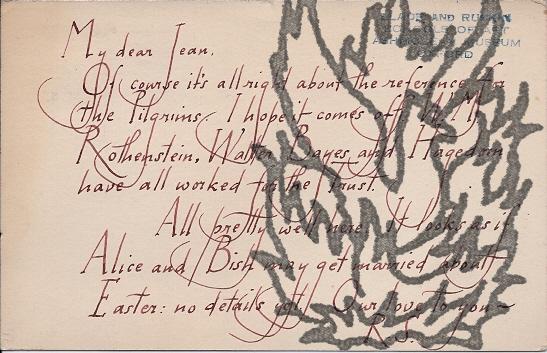 SLADE AND RUSKIN
SCHOOLS OF ART
ASHMOLEAN MUSEUM
OXFORD
My dear Jean,
Of course it's all right about the reference for
the Pilgrims. I hope it comes off. W.M.
Rothenstein, Walter Bayes and Hagedorn
have all worked for the Trust.
All pretty well here. It looks as if
Alice and Bish may get married about
Easter: no details yet. Our love to you ~
R.S.